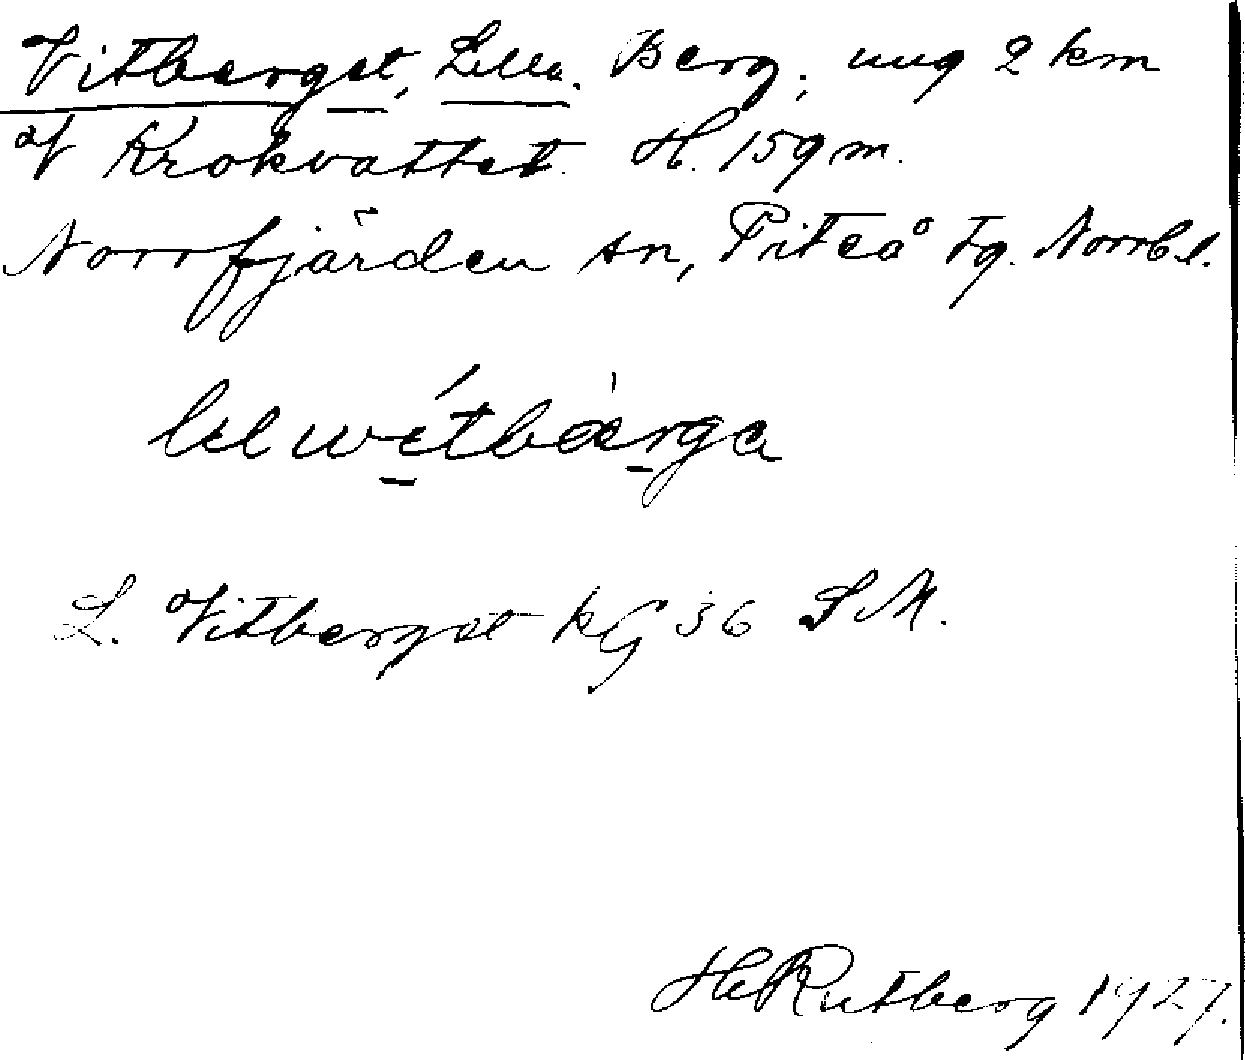 Vitberget, Lilla. Berg, ung 2 km
V Krokvattet. H. 159 m.
Norrfjärden sn, Piteå tg. Norrb l.
lil wétbærga
L. Vitberget kG 36 S M.
HRutberg 1927.